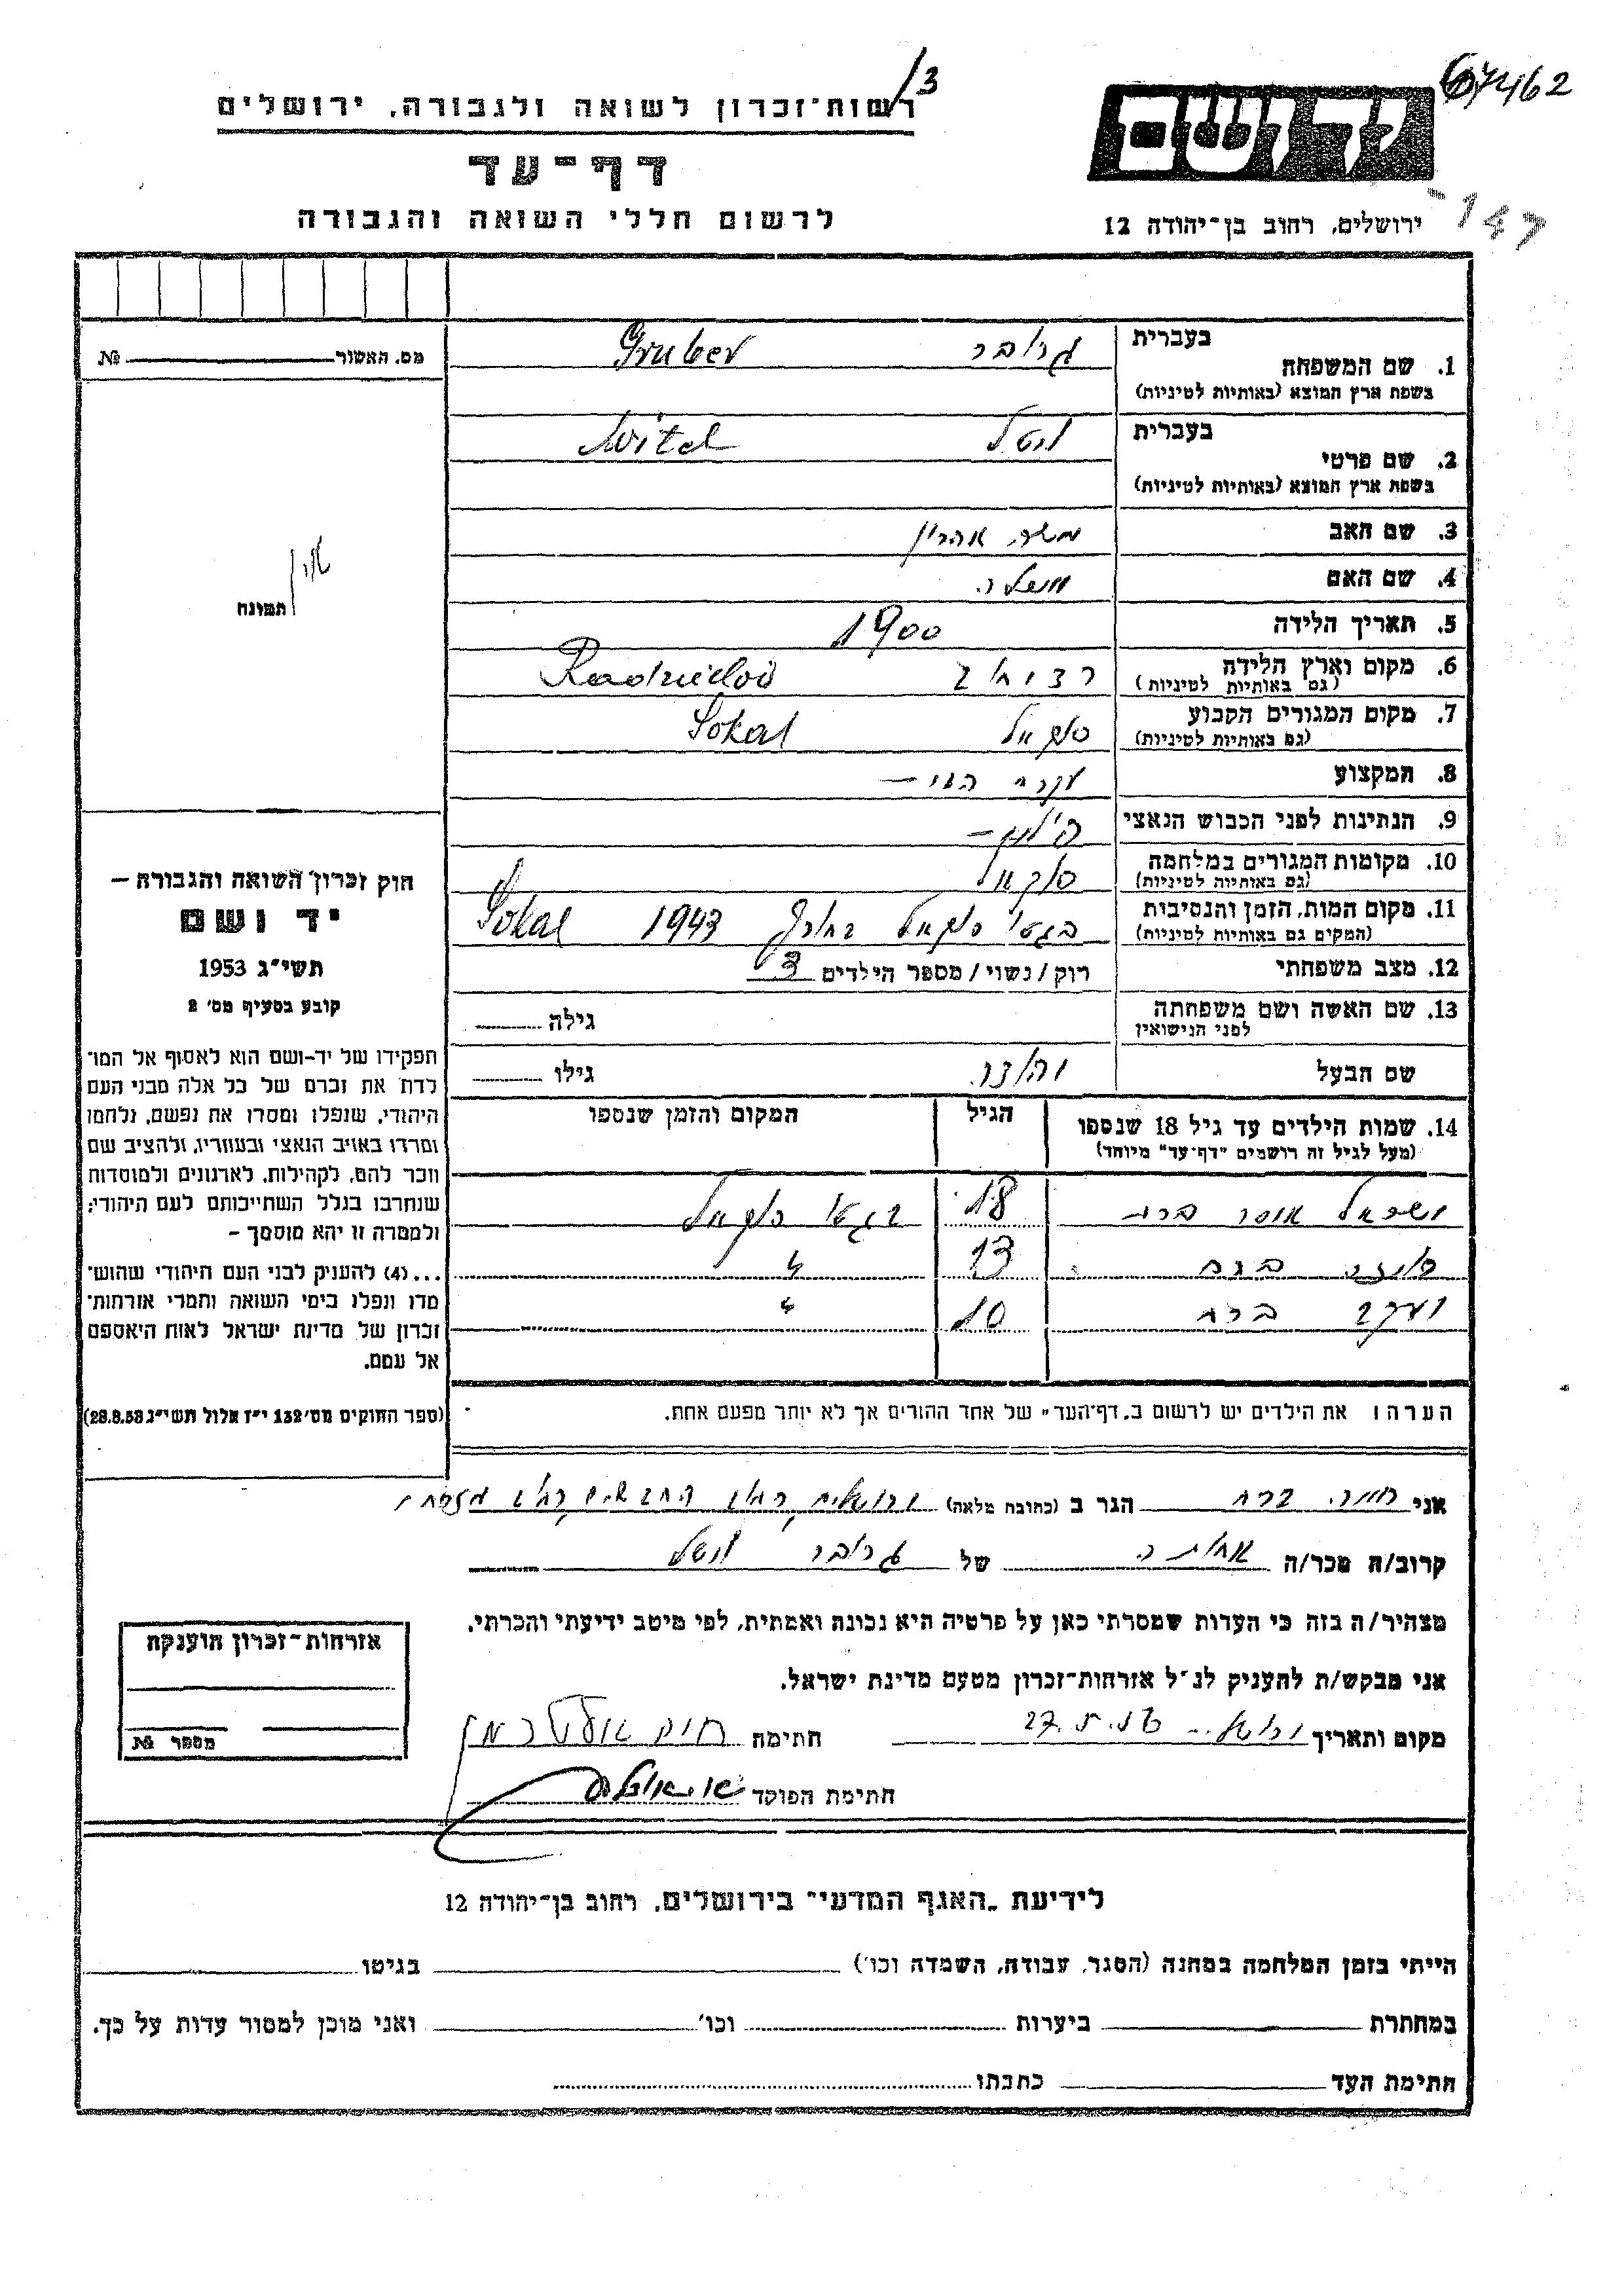 /3
67462
רשות־זכרון לשואה ולגבורה, ירושלים
יד ושם
דף־עד
לרשום חללי השואה והגבורה
ירושלים, רחוב בן־יהודה 12
147
מס. האשור № 
1. שם המשפחה בעברית גרובר Gruber
בשפת ארץ המוצא (באותיות לטיניות)
2. שם פרטי בעברית ויטל Witel
בשפת ארץ המוצא (באותיות לטיניות)
3. שם האב משה אהרון
4. שם האם
5. תאריך הלידה 1900
6. מקום וארץ הלידה
(גם באותיות לטיניות)
7. מקום המגורים הקבוע סוקאל Sokal
(גם באותיות לטיניות)
8. המקצוע עקרת בית –
9. הנתינות לפני הכבוש הנאצי פולין –
10. מקומות המגורים במלחמה סוקאל
(גם באותיות לטיניות)
11. מקום המות, הזמן והנסיבות בגטו סוקאל בחורף 1943 Sokal
(המקום גם באותיות לטיניות)
12. מצב משפחתי רוק / נשוי / מספר הילדים 3
13. שם האשה ושם משפחתה גילה
לפני הנישואין
שם הבעל גילו
14. שמות הילדים עד גיל 18 שנספו הגיל המקום והזמן שנספו
(מעל לגיל זה רושמים "דף־עד" מיוחד)
ישראל אוסר ברט 18 בגטו סוקאל
13 "
יעקב ברט 10 "
הערה: את הילדים יש לרשום ב„דף־העד" של אחד ההורים אך לא יותר מפעם אחת.
תמונה אין
חוק זכרון השואה והגבורה –
יד ושם
תשי"ג 1953
קובע בסעיף מס' 2
תפקידו של יד־ושם הוא לאסוף אל המו־
לדת את זכרם של כל אלה מבני העם
היהודי, שנפלו ומסרו את נפשם, נלחמו
ומרדו באויב הנאצי ובעוזריו, ולהציב שם
וזכר להם, לקהילות, לארגונים ולמוסדות
שנחרבו בגלל השתייכותם לעם היהודי;
ולמטרה זו יהא מוסמך –
...(4) להעניק לבני העם היהודי שהוש־
מדו ונפלו בימי השואה והמרי אזרחות־
זכרון של מדינת ישראל לאות היאספם
אל עמם.
(ספר החוקים מס' 132 י"ז אלול תשי"ג 28.8.53)
אני חיה ברט הגר ב (כתובת מלאה) ירושלים
קרוב/ה מכר/ה אחותה של גרובר ויטל
מצהיר/ה בזה כי העדות שמסרתי כאן על פרטיה היא נכונה ואמתית, לפי מיטב ידיעתי והכרתי.
אני מבקש/ת להעניק לנ"ל אזרחות־זכרון מטעם מדינת ישראל.
מקום ותאריך 27.5.56 חתימה
חתימת הפוקד
אזרחות־זכרון הוענקה
מספר №
לידיעת „האגף המדעי" בירושלים, רחוב בן־יהודה 12
הייתי בזמן המלחמה במחנה (הסגר, עבודה, השמדה וכו') בגיטו
במחתרת ביערות וכו' ואני מוכן למסור עדות על כך.
חתימת העד כתבתו